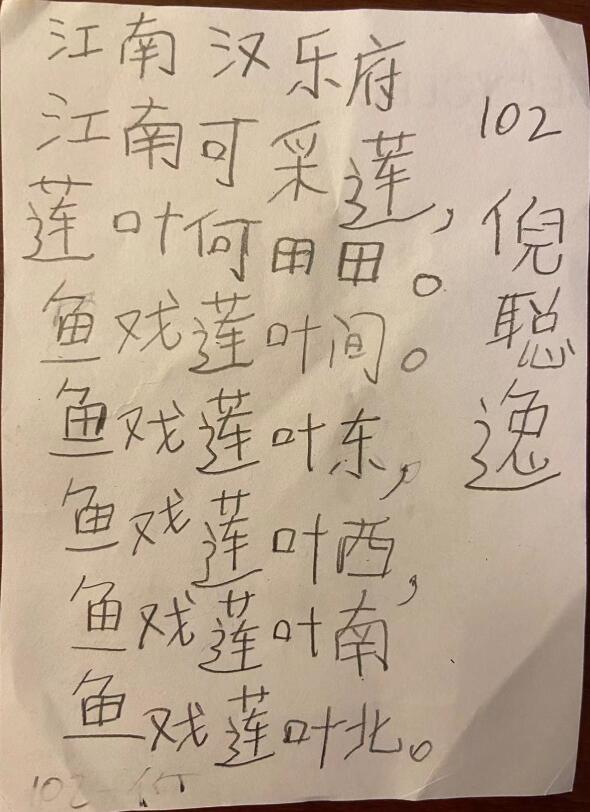 江南 汉乐府
江南可采莲，
莲叶何田田。
鱼戏莲叶间。
鱼戏莲叶东，
鱼戏莲叶西，
鱼戏莲叶南
鱼戏莲叶北。
102
倪聪逸
102